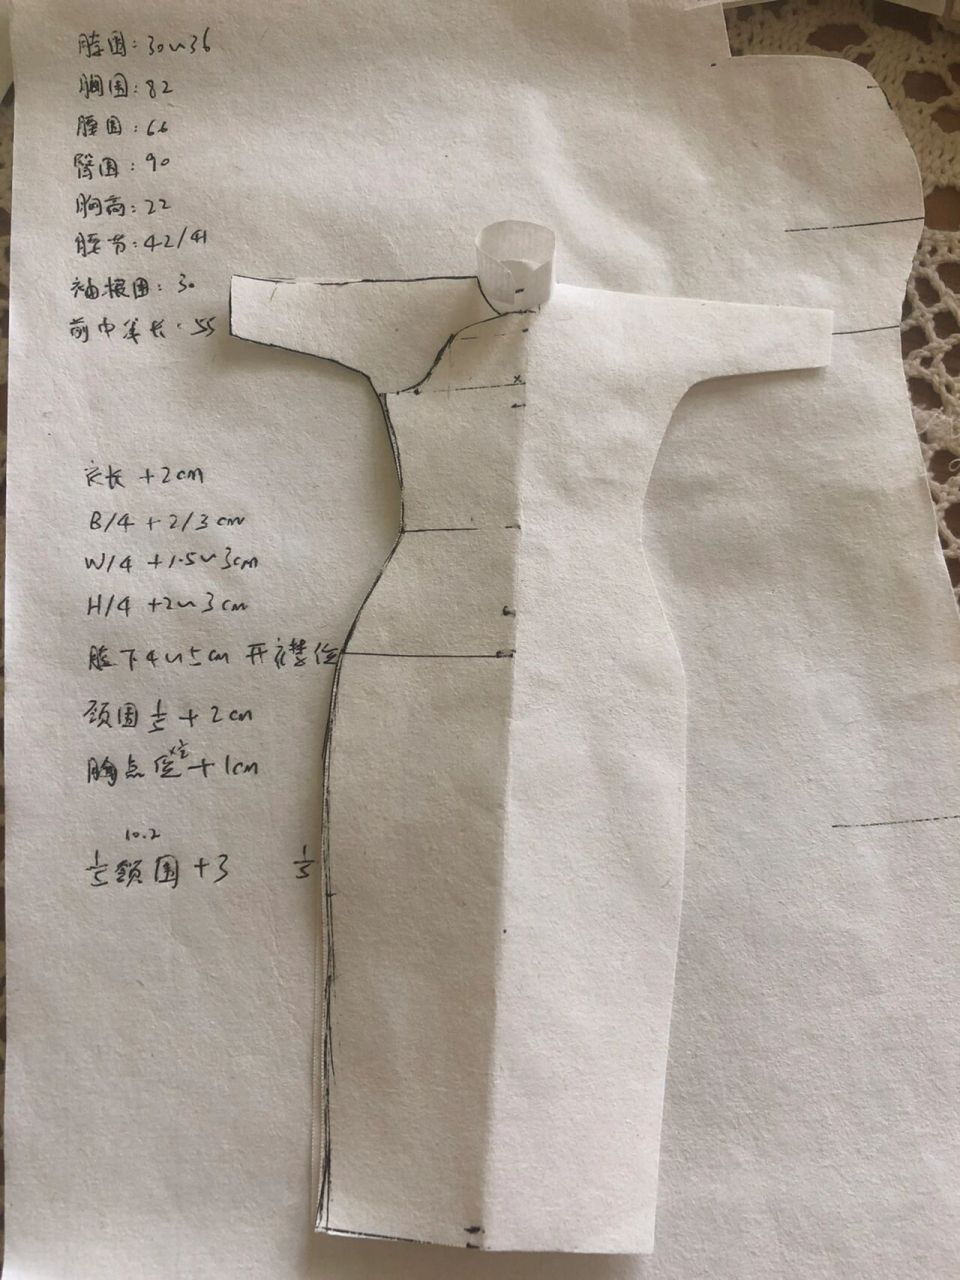 脖围：30~36
胸围：82
腰围：66
臀围：90
胸高：22
腰节：42/41
袖根围：30
前中 长：55
衣长 +2cm
B/4 +2/3cm
W/4 +1.5~3cm
H/4 +2~3cm
腋下4~5cm 开衣襟位
颈围 1/5 +2cm
胸点位×1/2 +1cm
10.2
1/5 颈围 +3
1/5